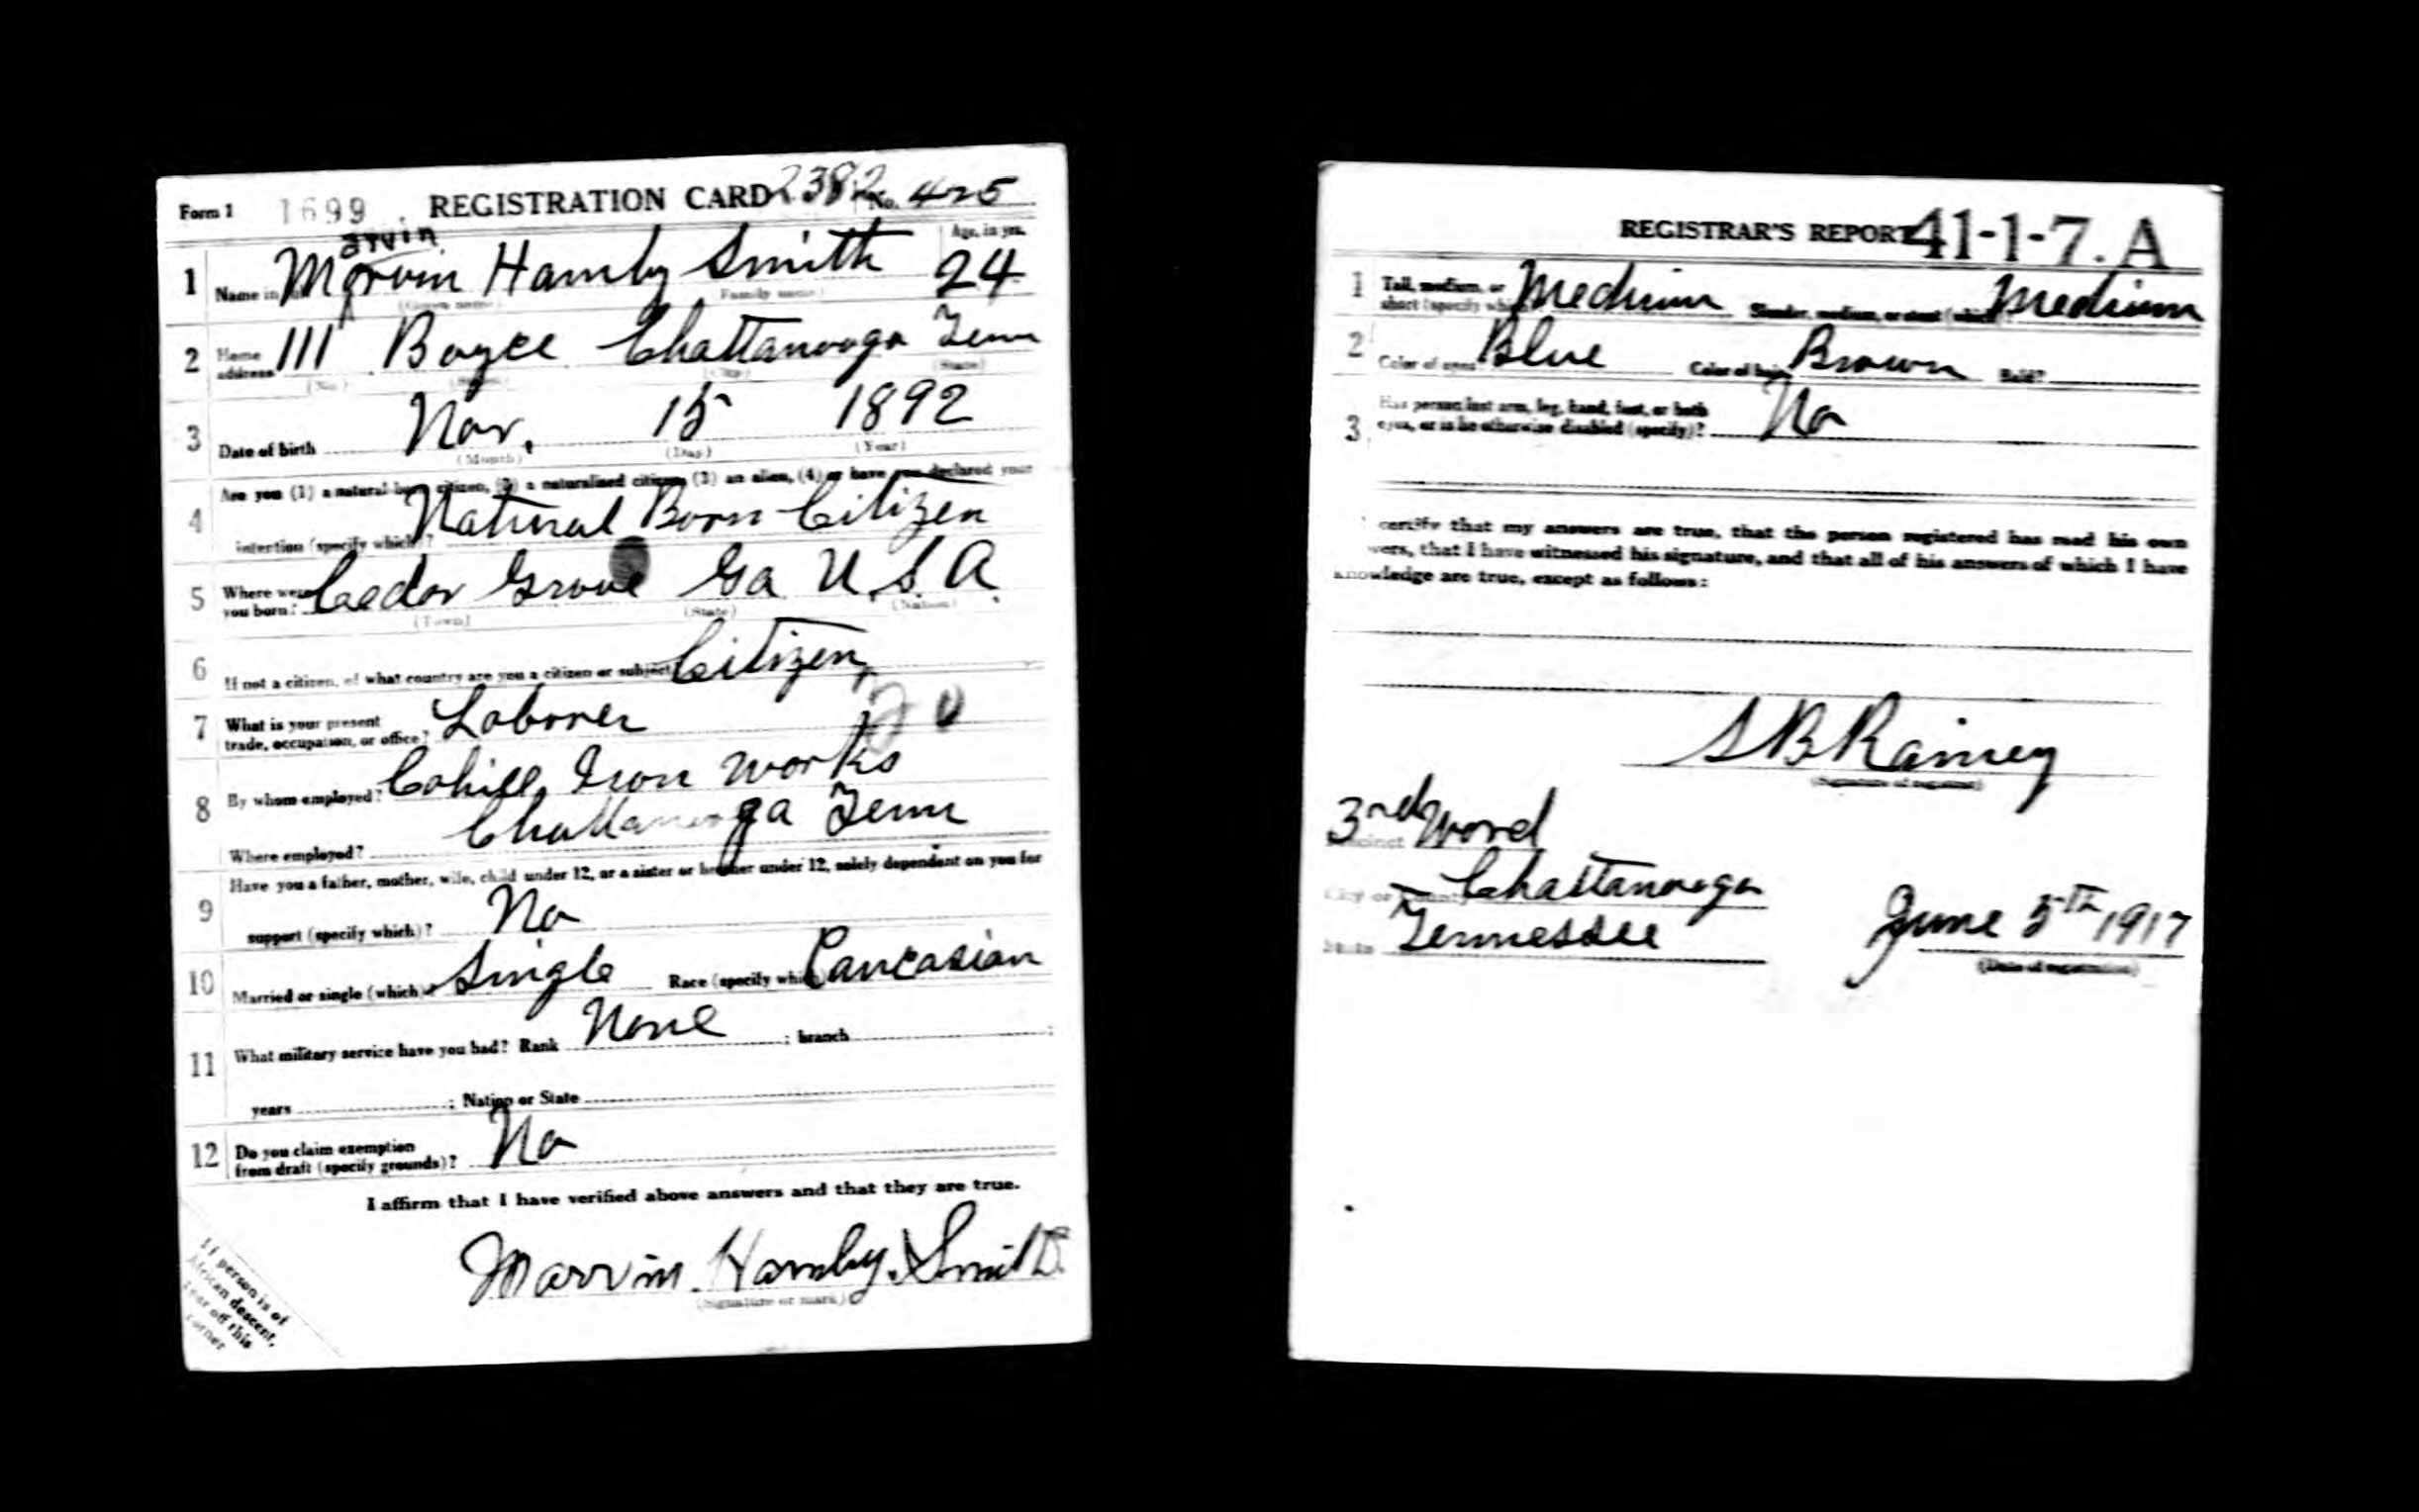 Form 1 1699 REGISTRATION CARD 2382 No. 425
arvin
Age, in yrs.
1 Name in Marvin Hamby Smith 24
(Given name) (Family name)
2 Home address 111 Boyce Chattanooga Tenn
(No.) (Street) (City) (State)
3 Date of birth Nov. 15 1892
(Month) (Day) (Year)
4 Are you (1) a natural-born citizen, (2) a naturalized citizen, (3) an alien, (4) or have you declared your
intention (specify which)? Natural Born Citizen
5 Where were you born? Ceder Grove Ga U.S.A.
(Town) (State) (Nation)
6 If not a citizen, of what country are you a citizen or subject? Citizen
7 What is your present trade, occupation, or office? Laborer 20
8 By whom employed? Cahill Iron Works
Where employed? Chattanooga Tenn
9 Have you a father, mother, wife, child under 12, or a sister or brother under 12, solely dependent on you for
support (specify which)? No
10 Married or single (which)? Single Race (specify which)? Caucasian
11 What military service have you had? Rank None ; branch ;
years ; Nation or State
12 Do you claim exemption from draft (specify grounds)? No
I affirm that I have verified above answers and that they are true.
Marvin. Hamby. Smith.
(Signature or mark)
If person is of
African descent,
tear off this
corner
REGISTRAR'S REPORT 41-1-7. A
1 Tall, medium, or short (specify which)? Medium Slender, medium, or stout (which)? Medium
2 Color of eyes Blue Color of hair Brown Bald?
3 Has person lost arm, leg, hand, foot, or both eyes, or is he otherwise disabled (specify)? No
certify that my answers are true, that the person registered has read his own
wers, that I have witnessed his signature, and that all of his answers of which I have
knowledge are true, except as follows:
S B Rainey
(Signature of registrar)
3rd Word
Precinct
City or County Chattanooga
State Tennessee June 5th 1917
(Date of registration)